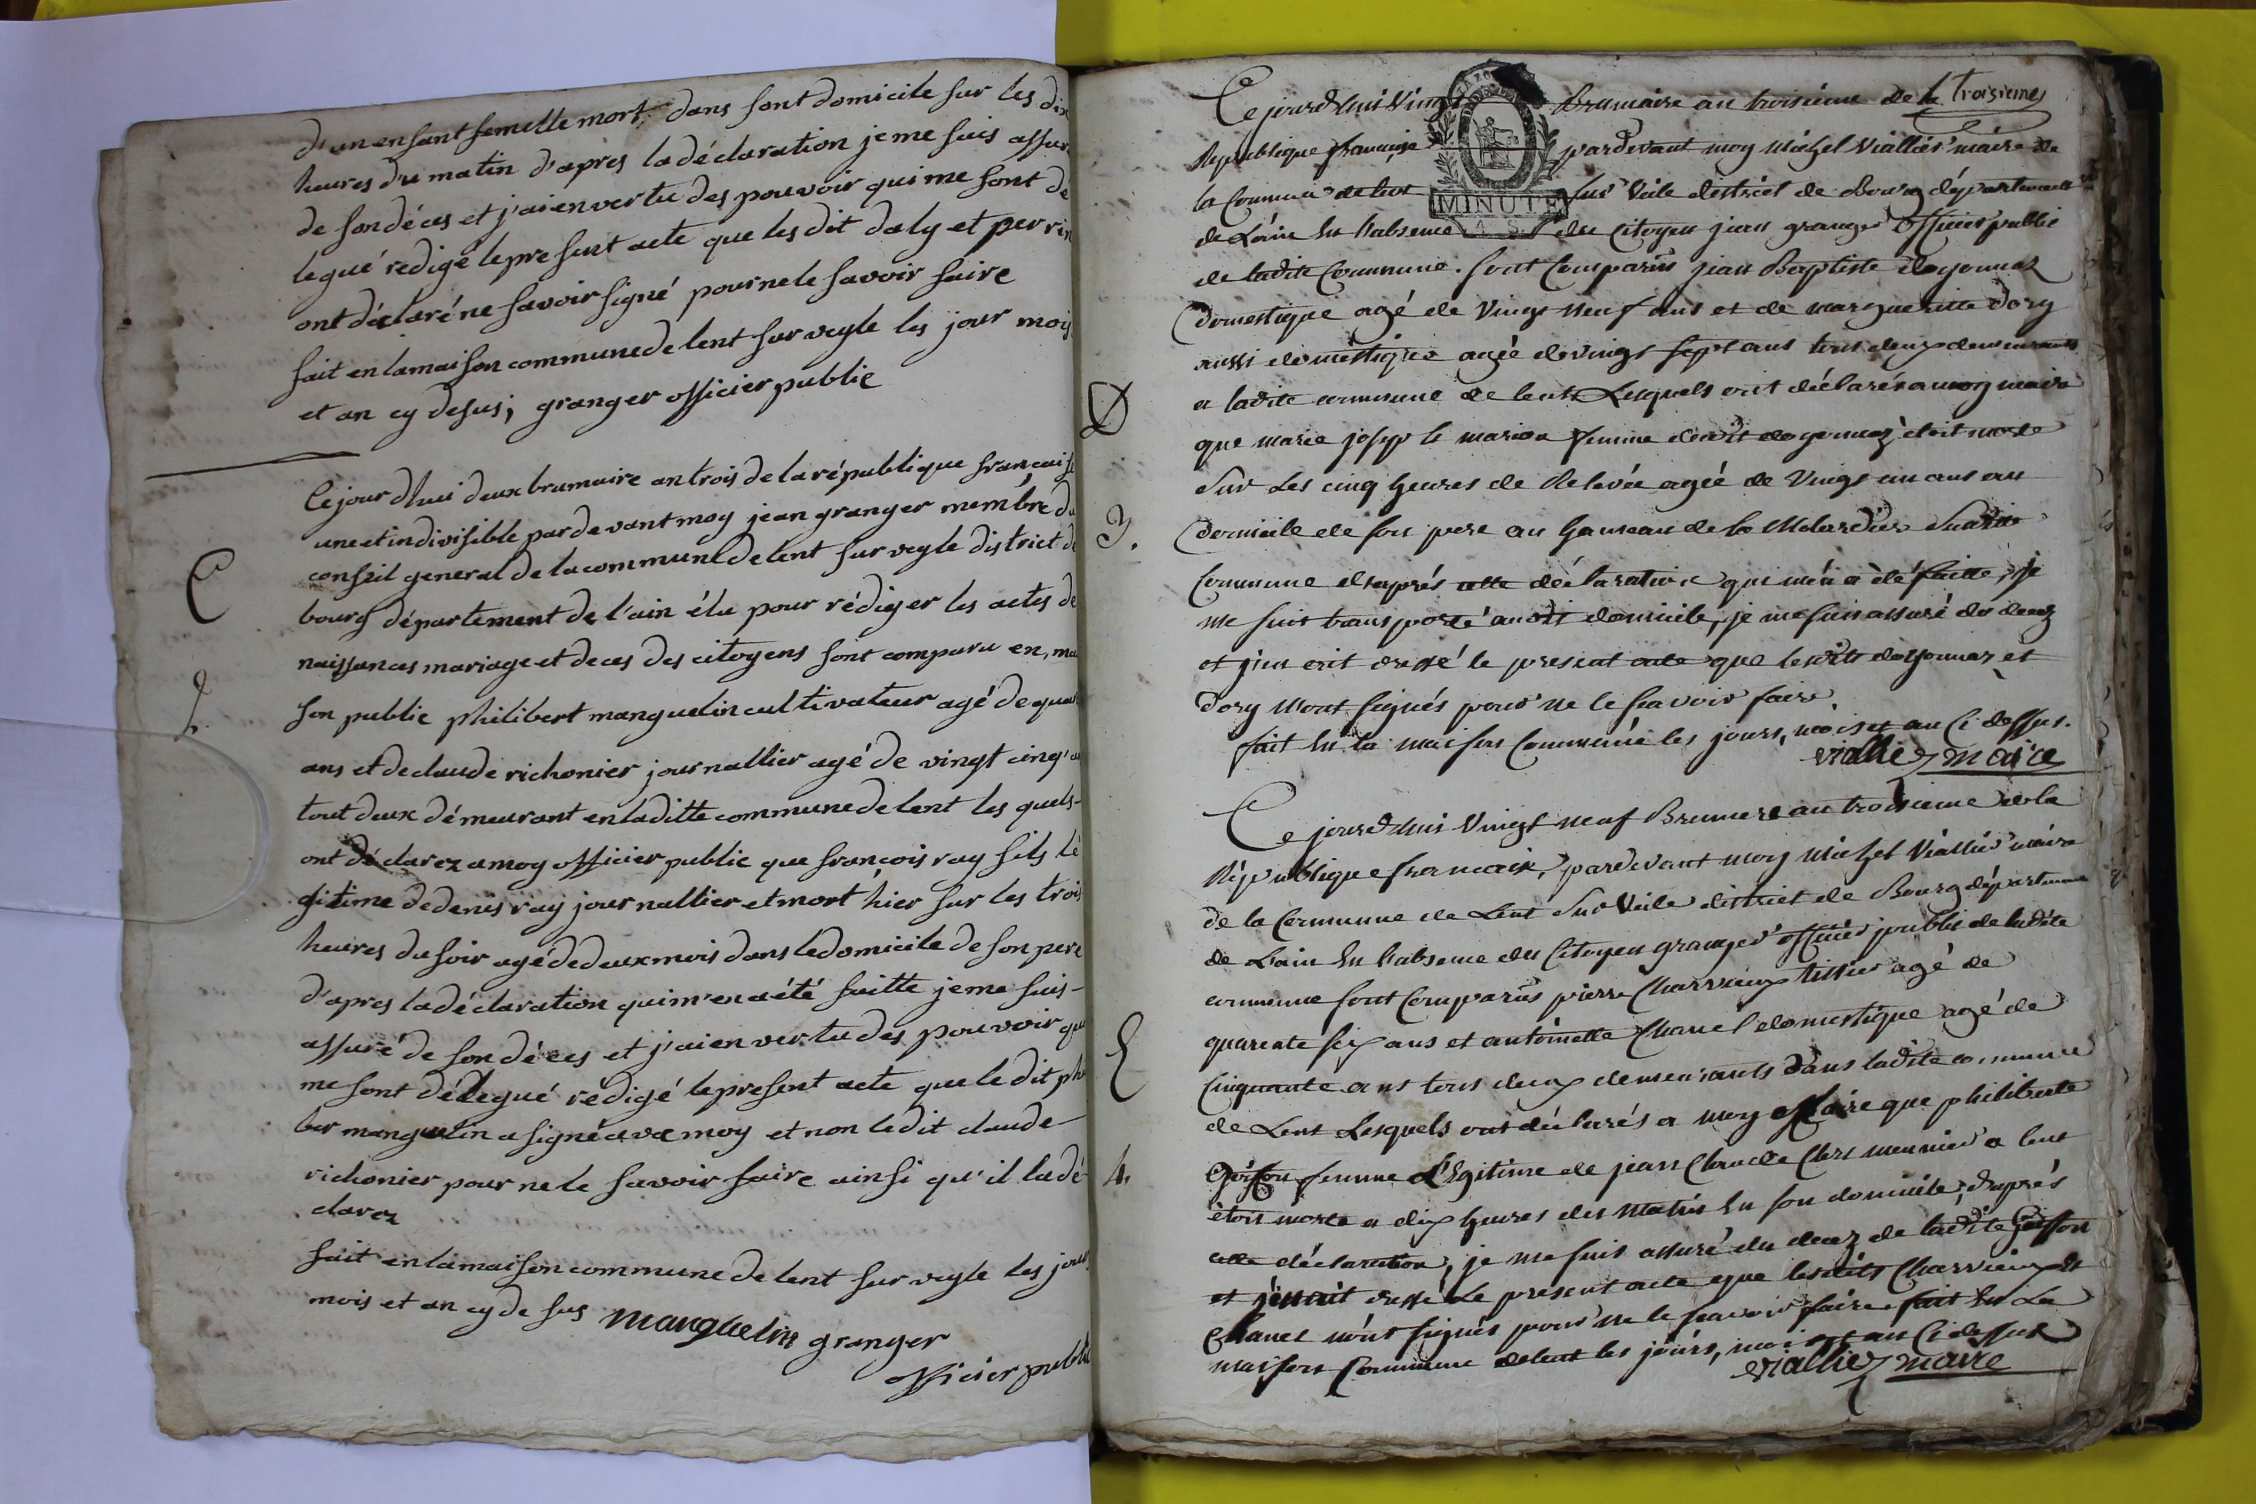 d'un enfant femelle mort dans sont domicile sur les dix
heures du matin d'apres la déclaration je me suis assuré
de son déces et j'ai en vertu des pouvoir qui me sont de
legué rédigé le present acte que les dit daly et perrin
ont déclaré ne savoir signé pour ne le savoir faire
fait en la maison commune de lent sur veyle les jour mois
et an cy desus, granger officier public
Ce jour dhui deux brumaire an trois de la république française
une et indivisible par devant moy jean granger membre du
conseil general de la commune de lent sur veyle district de
bourg département de l'ain élu pour rédiger les actes de
naissances mariage et deces des citoyens sont comparu en, mai
son public philibert manguelin cultivateur agé de quar
ans et de claude richonier journallier agé de vingt cinq
tout deux démeurant en laditte commune de lent les quels
ont déclarez a moy officier public que françois ray fils lé
gitime de denis ray journallier et mort hier sur les trois
heures du soir agé de deux mois dans le domicile de son pere
d'apres la déclaration qui m'en a été faitte je me suis
assuré de son déces et j'ai en vertu des pouvoir qui
me sont délegué rédigé le present acte que le dit phi
ber manguelin a signé avec moy et non le dit claude
richonier pour ne le savoir faire ainsi qu'il la dé
clarez
fait en la maison commune de lent sur veyle les jours
mois et an cy de sus manguelin granger
officier public
C
2.
troisieme
Ce jourd'hui Vingt Brumaire an troisieme de la
Republique française pardevant moy Michel Viallier maire de
la Commune de lent sur Veile district de Bourg département
MINUTE
de L'ain En l'absence du Citoyen jean granger officier public
de ladite Commune. sont Comparus jean Baptiste doyonnaz
domestique agé de Vingt neuf ans et de marguerite dory
aussi domestique agée de vingt sept ans tous deux demeurants
a ladite commune de lent Lesquels ont déclarés a moy maire
que marie joseph le marion femme dudit doyonnaz étoit morte
Sur Les cinq heures de Relevée agée de Vingt un ans au
domicile de son pere au hameau de la Molardiere Susdite
Commune d'aprés cette déclaration qui m'en a été faitte, je
me suis transporté audit domicile, je me suis assuré du decez
et j'en ait dressé le present acte que lesdits doyonnaz et
dory n'ont signés pour ne le scavoir faire.
fait En la maison Commune les jours, mois et an Ci dessus.
viallier maire
D
3.
Ce jourd'hui Vingt neuf Brumere an troisieme de la
République francaise, pardevant moy Michel Viallier maire
de la Commune de Lent Sur Veile district de Bourg département
de L'ain En l'absence du Citoyen granger officier public de ladite
commune sont Comparus pierre Charvieux tissier agé de
quarente six ans et antoinette Chanel domestique agé de
Cinquante ans tous deux demeurants dans ladite commune
de Lent Lesquels ont déclarés a moy Maire que philiberte
Goiffon femme L'Egitime de jean Claude Clerc meunier a lent
étoit morte a dix heures du Matin En son domicile, d'aprés
cette déclaration, je me suis assuré du decez de ladite Goiffon
et j'en ait dressé Le present acte que lesdits Charvieux et
Chanel n'ont signés pour ne le scavoir faire fait En La
maison Commune de lent les jours, mois et an Ci dessus
viallier maire
E
4.